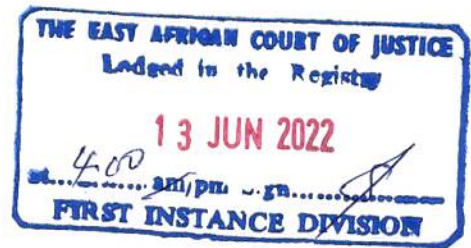 THE EAST AFRICAN COURT OF JUSTICE
Lodged in the Registry
13 JUN 2022
at....4:00.... am/pm
FIRST INSTANCE DIVISION